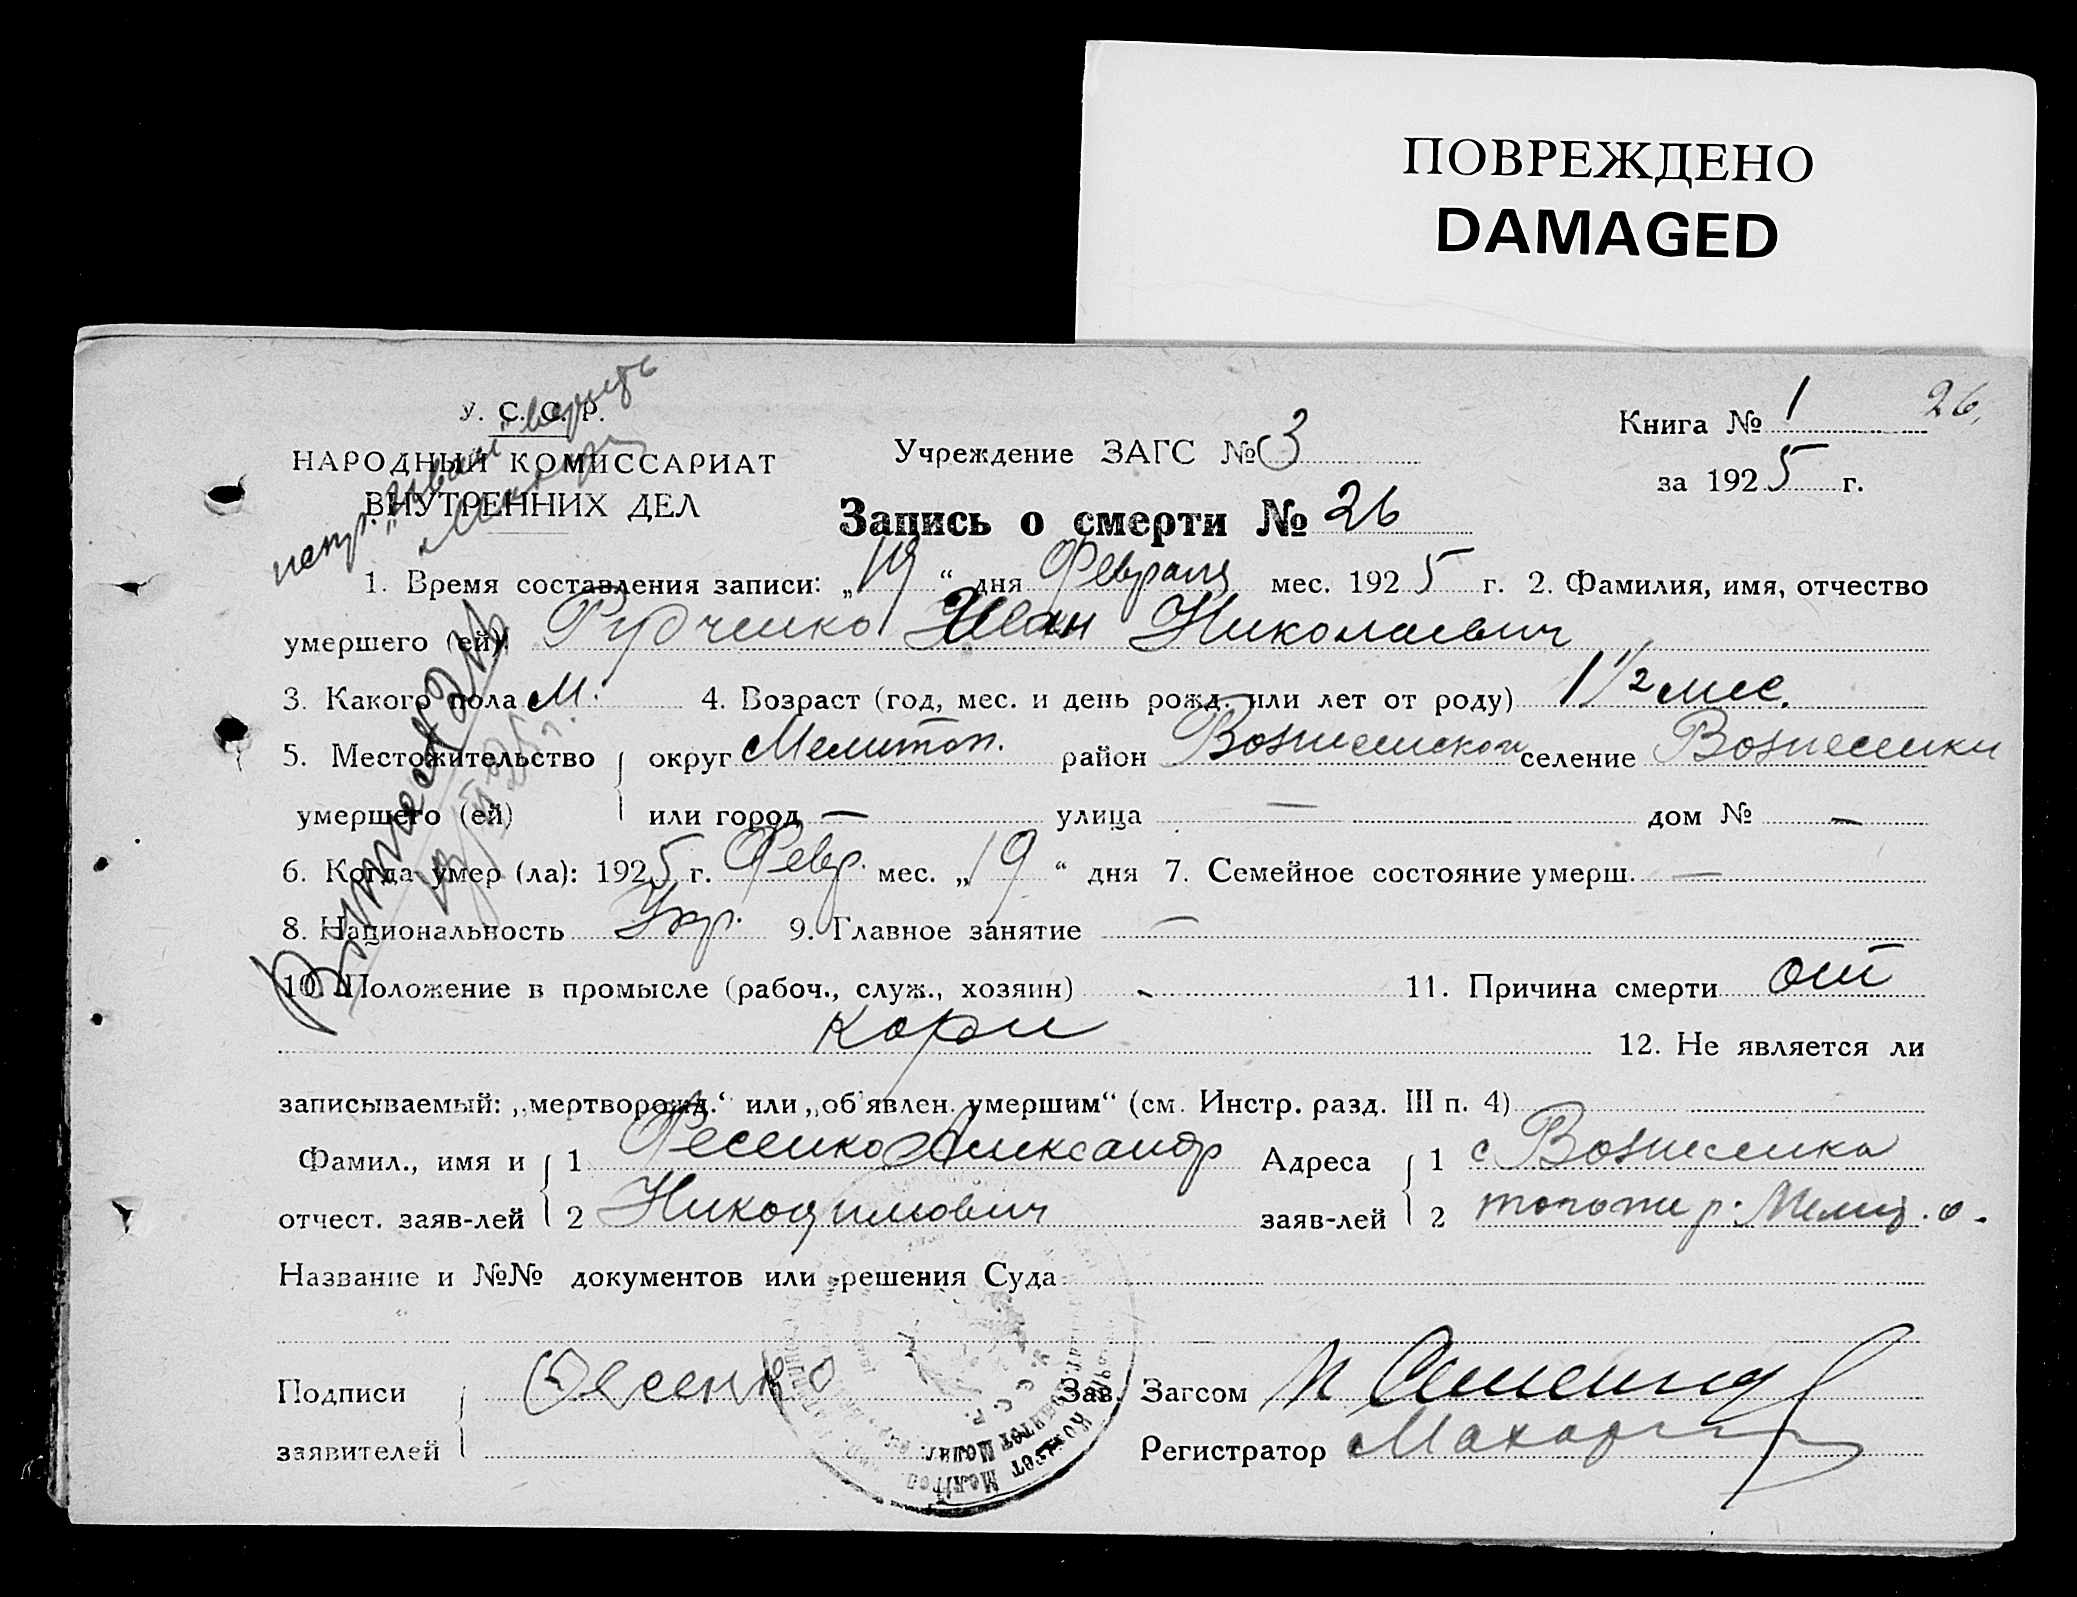 ПОВРЕЖДЕНО
DAMAGED
У. С. С. Р.
НАРОДНЫЙ КОМИССАРИАТ
ВНУТРЕННИХ ДЕЛ
испр. „Иван“ верить
Учреждение ЗАГС № 3
Книга № 1 26
за 1925 г.
Запись о смерти № 26
1. Время составления записи: „19“ дня Февраля мес. 1925 г. 2. Фамилия, имя, отчество
умершего (ей) Рудченко Иван Николаевич
3. Какого пола М. 4. Возраст (год, мес. и день рожд. или лет от роду) 1 1/2 мес.
5. Местожительство округ Мелитоп. район Вознесенском селение Вознесенки
умершего (ей) или город — улица — дом № —
6. Когда умер (ла): 1925 г. Февр. мес. „19“ дня 7. Семейное состояние умерш. —
8. Национальность Укр. 9. Главное занятие —
10. Положение в промысле (рабоч., служ., хозяин) - 11. Причина смерти от
кори 12. Не является ли
записываемый: „мертворожд.“ или „об'явлен. умершим“ (см. Инстр. разд. III п. 4)
Фамил., имя и 1 Фесенко Александр Адреса 1 с Вознесенка
отчест. заяв-лей 2 Никодимович заяв-лей 2 р. Мелит. о.
Название и №№ документов или решения Суда
Подписи Фесенко Зав. Загсом
заявителей Регистратор